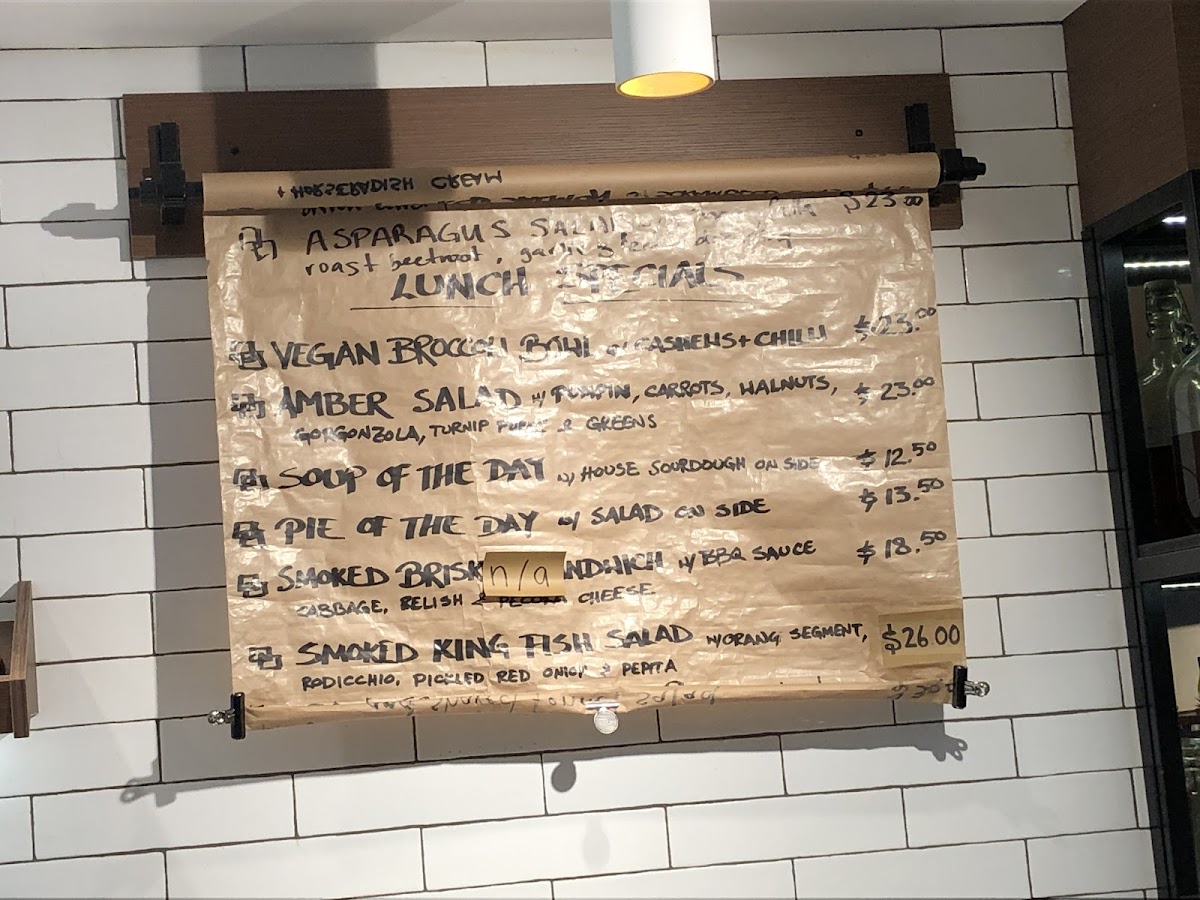 + HORSERADISH CREAM
ASPARAGUS $23.00
roast beetroot,
LUNCH SPECIALS
VEGAN BROCCOLI BOWL w/ CASHEWS + CHILLI $23.00
AMBER SALAD w/ PUMPIN, CARROTS, WALNUTS, $23.00
GORGONZOLA, TURNIP & GREENS
SOUP OF THE DAY w/ HOUSE SOURDOUGH ON SIDE $12.50
PIE OF THE DAY w/ SALAD ON SIDE $13.50
SMOKED BRISK n/a NDWICH w/ BBQ SAUCE $18.50
CABBAGE, RELISH & CHEESE
SMOKED KING FISH SALAD w/ ORANG SEGMENT, $26.00
RODICCHIO, PICKLED RED ONION & PEPITA